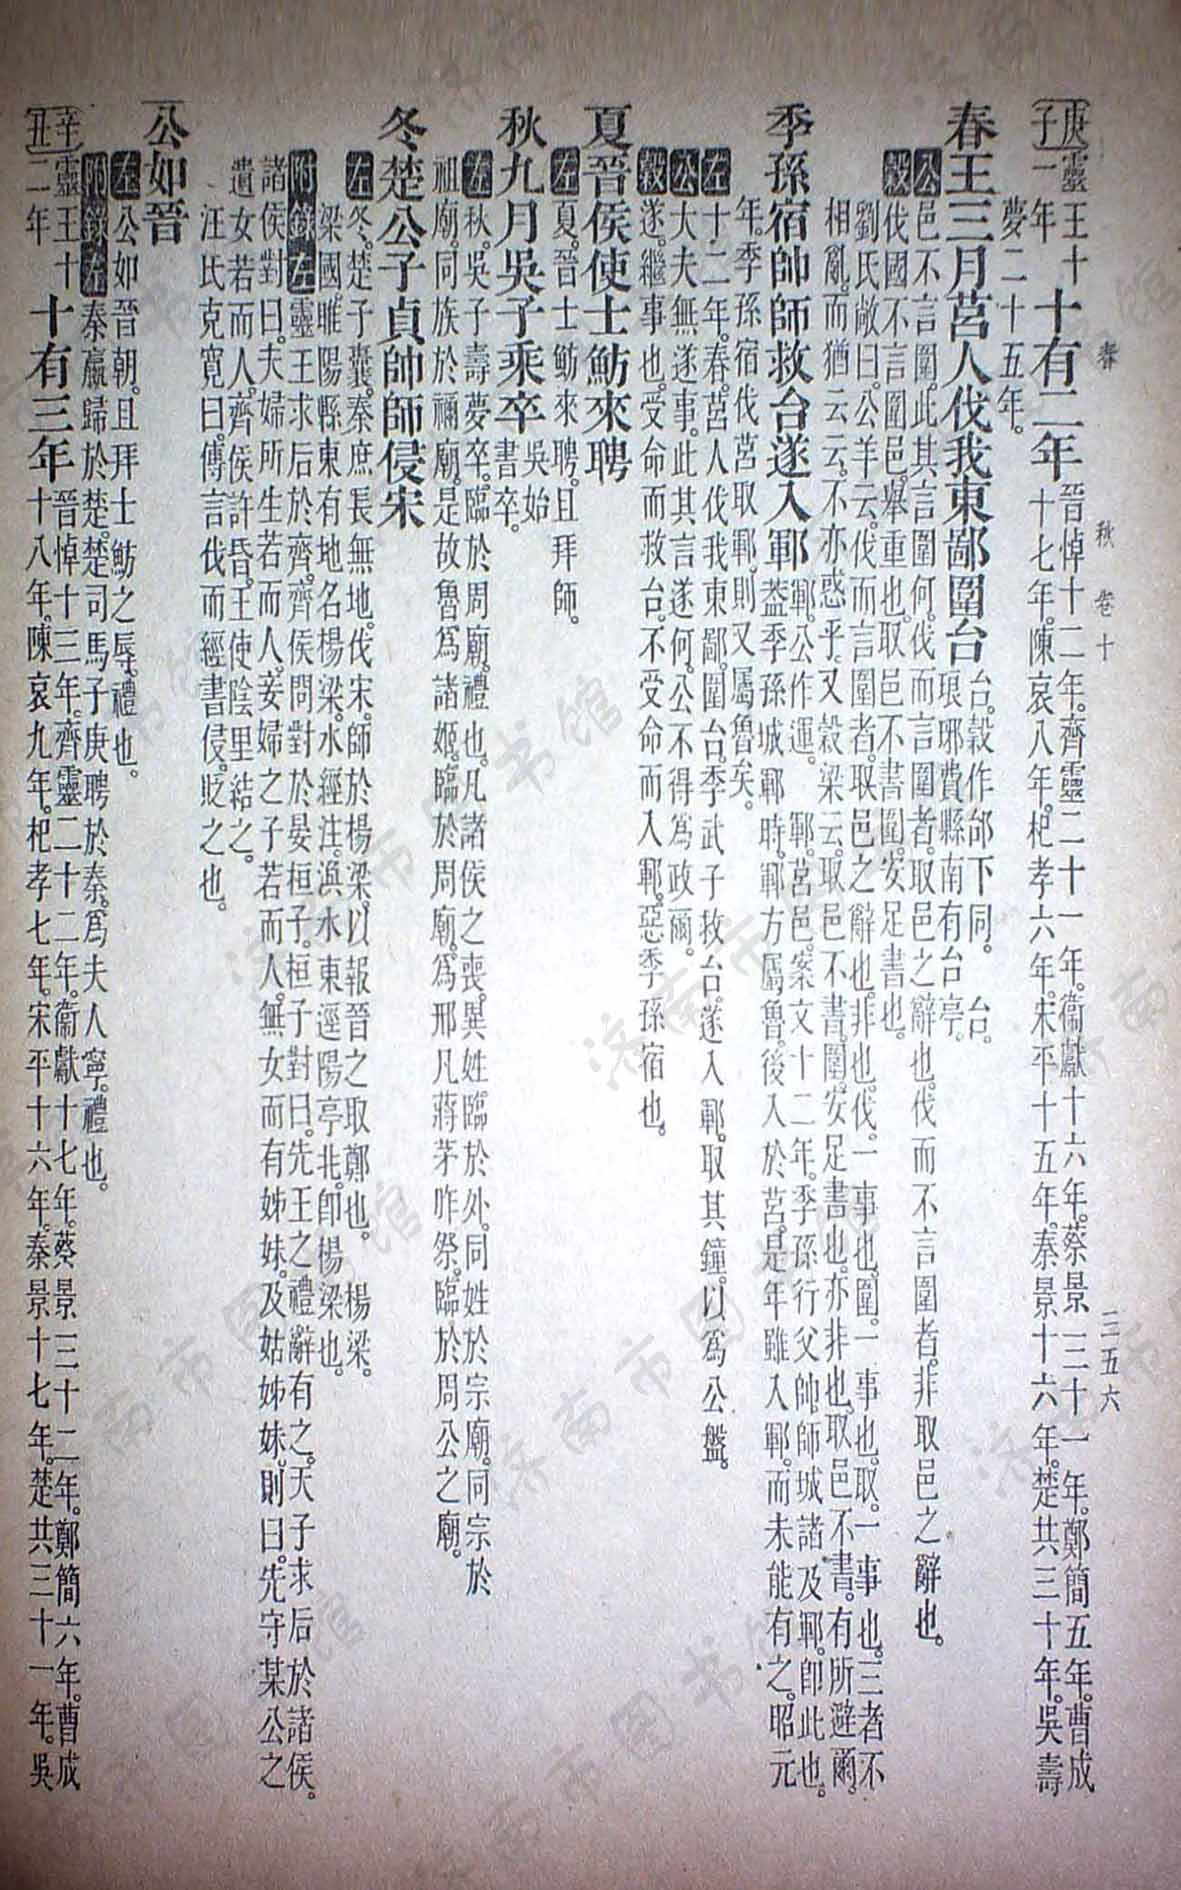 春秋 卷十 三五六
庚子 靈王十二年 十有二年 晉悼十二年。齊靈二十一年。衞獻十六年。蔡景三十一年。鄭簡五年。曹成
十七年。陳哀八年。杞孝六年。宋平十五年。秦景十六年。楚共三十年。吳壽
夢二十五年。
春王三月莒人伐我東鄙圍台 台。穀作邰下同。 台。
琅琊費縣南有台亭。
公 邑不言圍。此其言圍何。伐而言圍者。取邑之辭也。伐而不言圍者。非取邑之辭也。
穀 伐國不言圍邑。舉重也。取邑不書圍。安足書也。
劉氏敞曰。公羊云。伐而言圍者。取邑之辭也。非也。伐。一事也。圍。一事也。取。一事也。三者不
相亂。而猶云云。不亦惑乎。又穀梁云。取邑不書圍。安足書也。亦非也。取邑不書。有所避爾。
季孫宿帥師救台遂入鄆 鄆。公作運。 鄆。莒邑。案文十二年。季孫行父帥師城諸及鄆。卽此也。
蓋季孫城鄆時。鄆方屬魯。後入於莒。是年雖入鄆。而未能有之。昭元
年。季孫宿伐莒取鄆。則又屬魯矣。
左 十二年。春。莒人伐我東鄙。圍台。季武子救台。遂入鄆。取其鐘。以爲公盤。
公 大夫無遂事。此其言遂何。公不得爲政爾。
穀 遂。繼事也。受命而救台。不受命而入鄆。惡季孫宿也。
夏晉侯使士魴來聘
左 夏。晉士魴來聘。且拜師。
秋九月吳子乘卒 吳始
書卒。
左 秋。吳子壽夢卒。臨於周廟。禮也。凡諸侯之喪。異姓臨於外。同姓於宗廟。同宗於
祖廟。同族於禰廟。是故魯爲諸姬。臨於周廟。爲邢凡蔣茅胙祭。臨於周公之廟。
冬楚公子貞帥師侵宋
左 冬。楚子囊。秦庶長無地。伐宋。師於楊梁。以報晉之取鄭也。 楊梁。
梁國睢陽縣東有地名楊梁。水經注。渙水東逕陽亭北。卽楊梁也。
附錄左 靈王求后於齊。齊侯問對於晏桓子。桓子對曰。先王之禮辭有之。天子求后於諸侯。
諸侯對曰。夫婦所生若而人。妾婦之子若而人。無女而有姊妹。及姑姊妹。則曰。先守某公之
遺女若而人。齊侯許昏。王使陰里結之。
汪氏克寬曰。傳言伐而經書侵。貶之也。
公如晉
左 公如晉朝。且拜士魴之辱。禮也。
附錄左 秦嬴歸於楚。楚司馬子庚聘於秦。爲夫人寧。禮也。
辛丑 靈王十二年 十有三年 晉悼十三年。齊靈二十二年。衞獻十七年。蔡景三十二年。鄭簡六年。曹成
十八年。陳哀九年。杞孝七年。宋平十六年。秦景十七年。楚共三十一年。吳